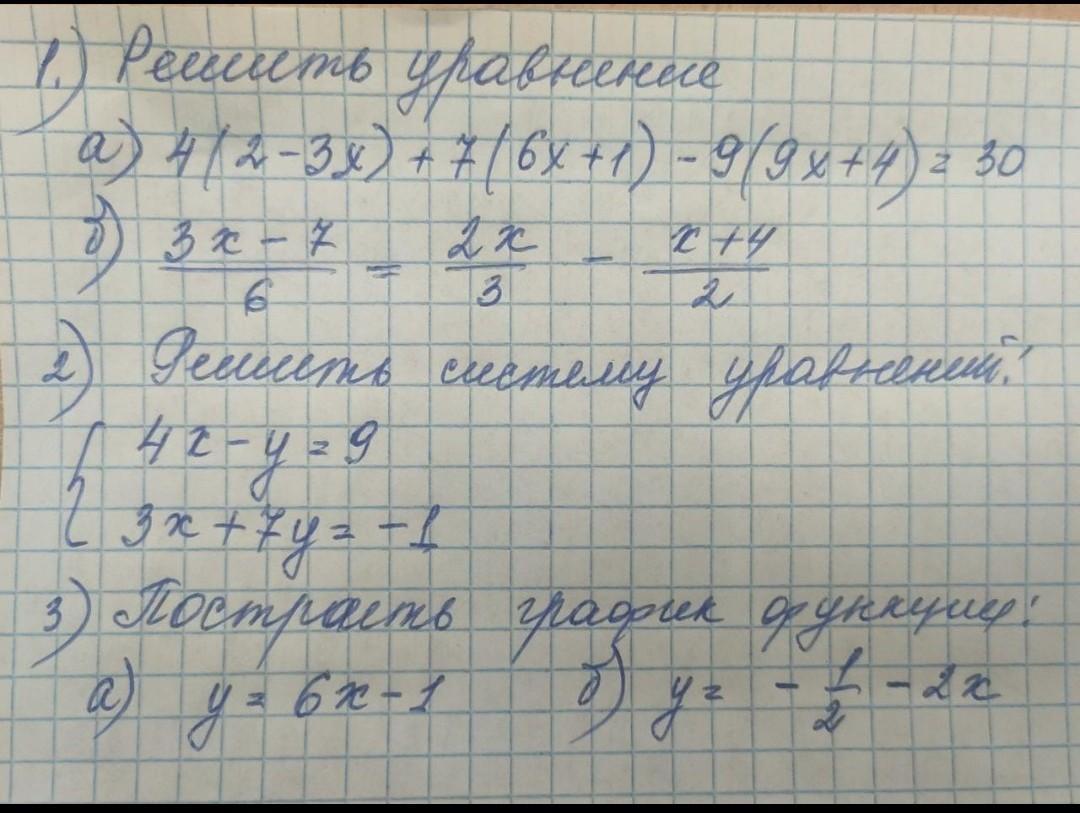 1.) Решить уравнение
а) 4(2-3x)+7(6x+1)-9(9x+4)=30
б) (3x-7)/6 = 2x/3 - (x+4)/2
2) Решить систему уравнений:
{ 4x-y=9
3x+7y=-1
3) Построить график функции:
а) y=6x-1 б) y= -1/2-2x